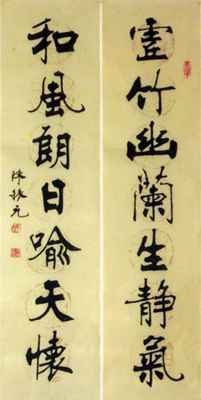 虚竹幽蘭生静氣
和風朗日喻天懷
陳振元